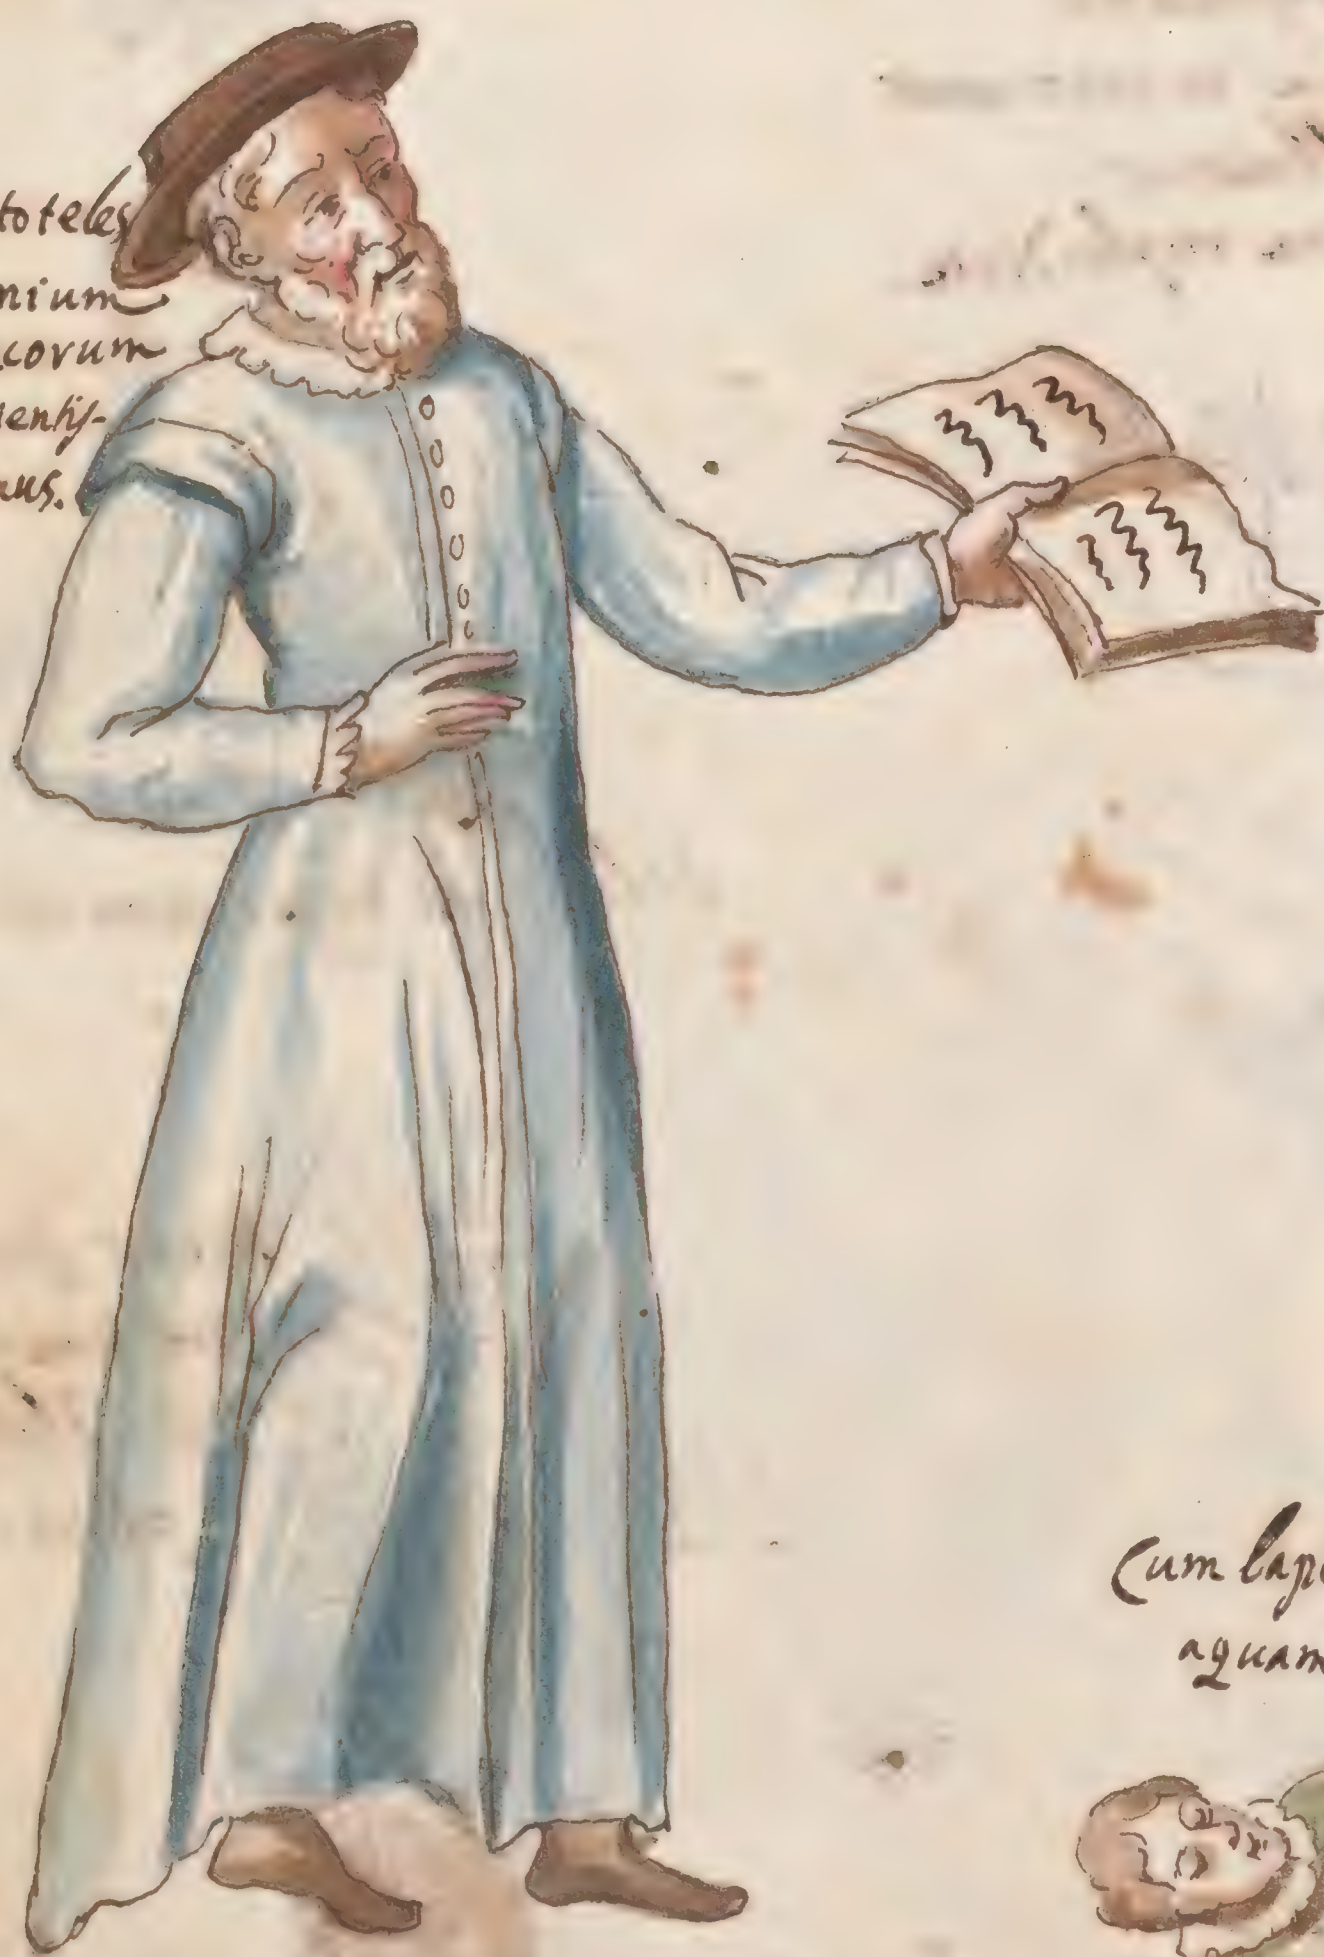 toteles
nium
corum
entis-
mus.
Cum lapi
aquam